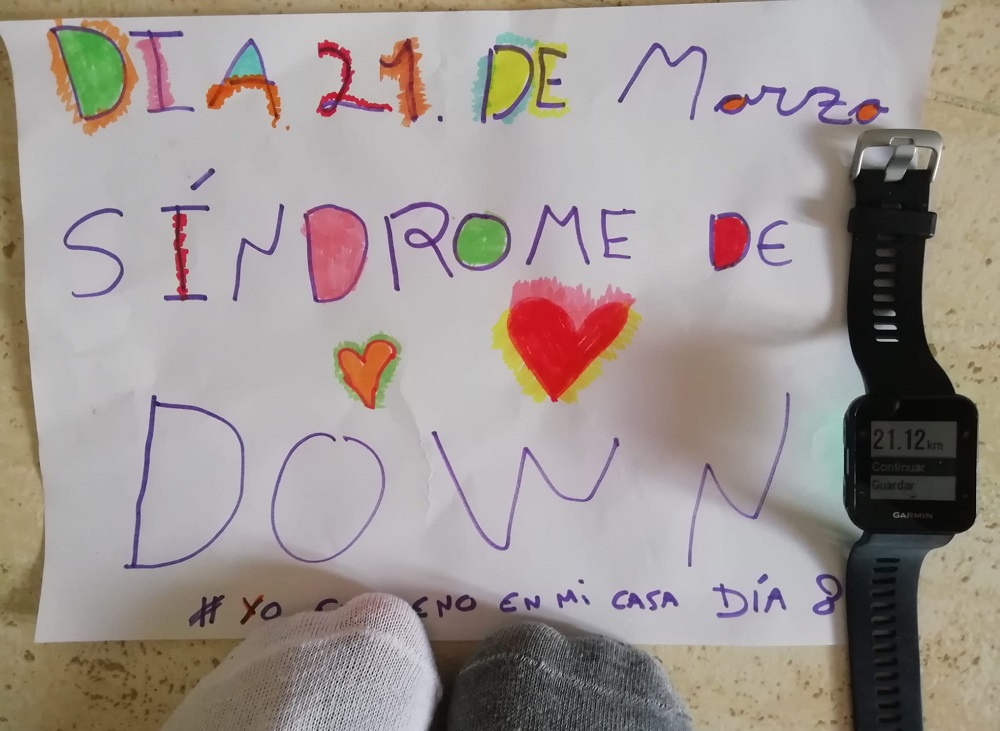 DIA 21. DE Marzo
SÍNDROME DE
DOWN
# YO EN MI CASA DÍA 8
21.12 km
Continuar
Guardar
GARMIN